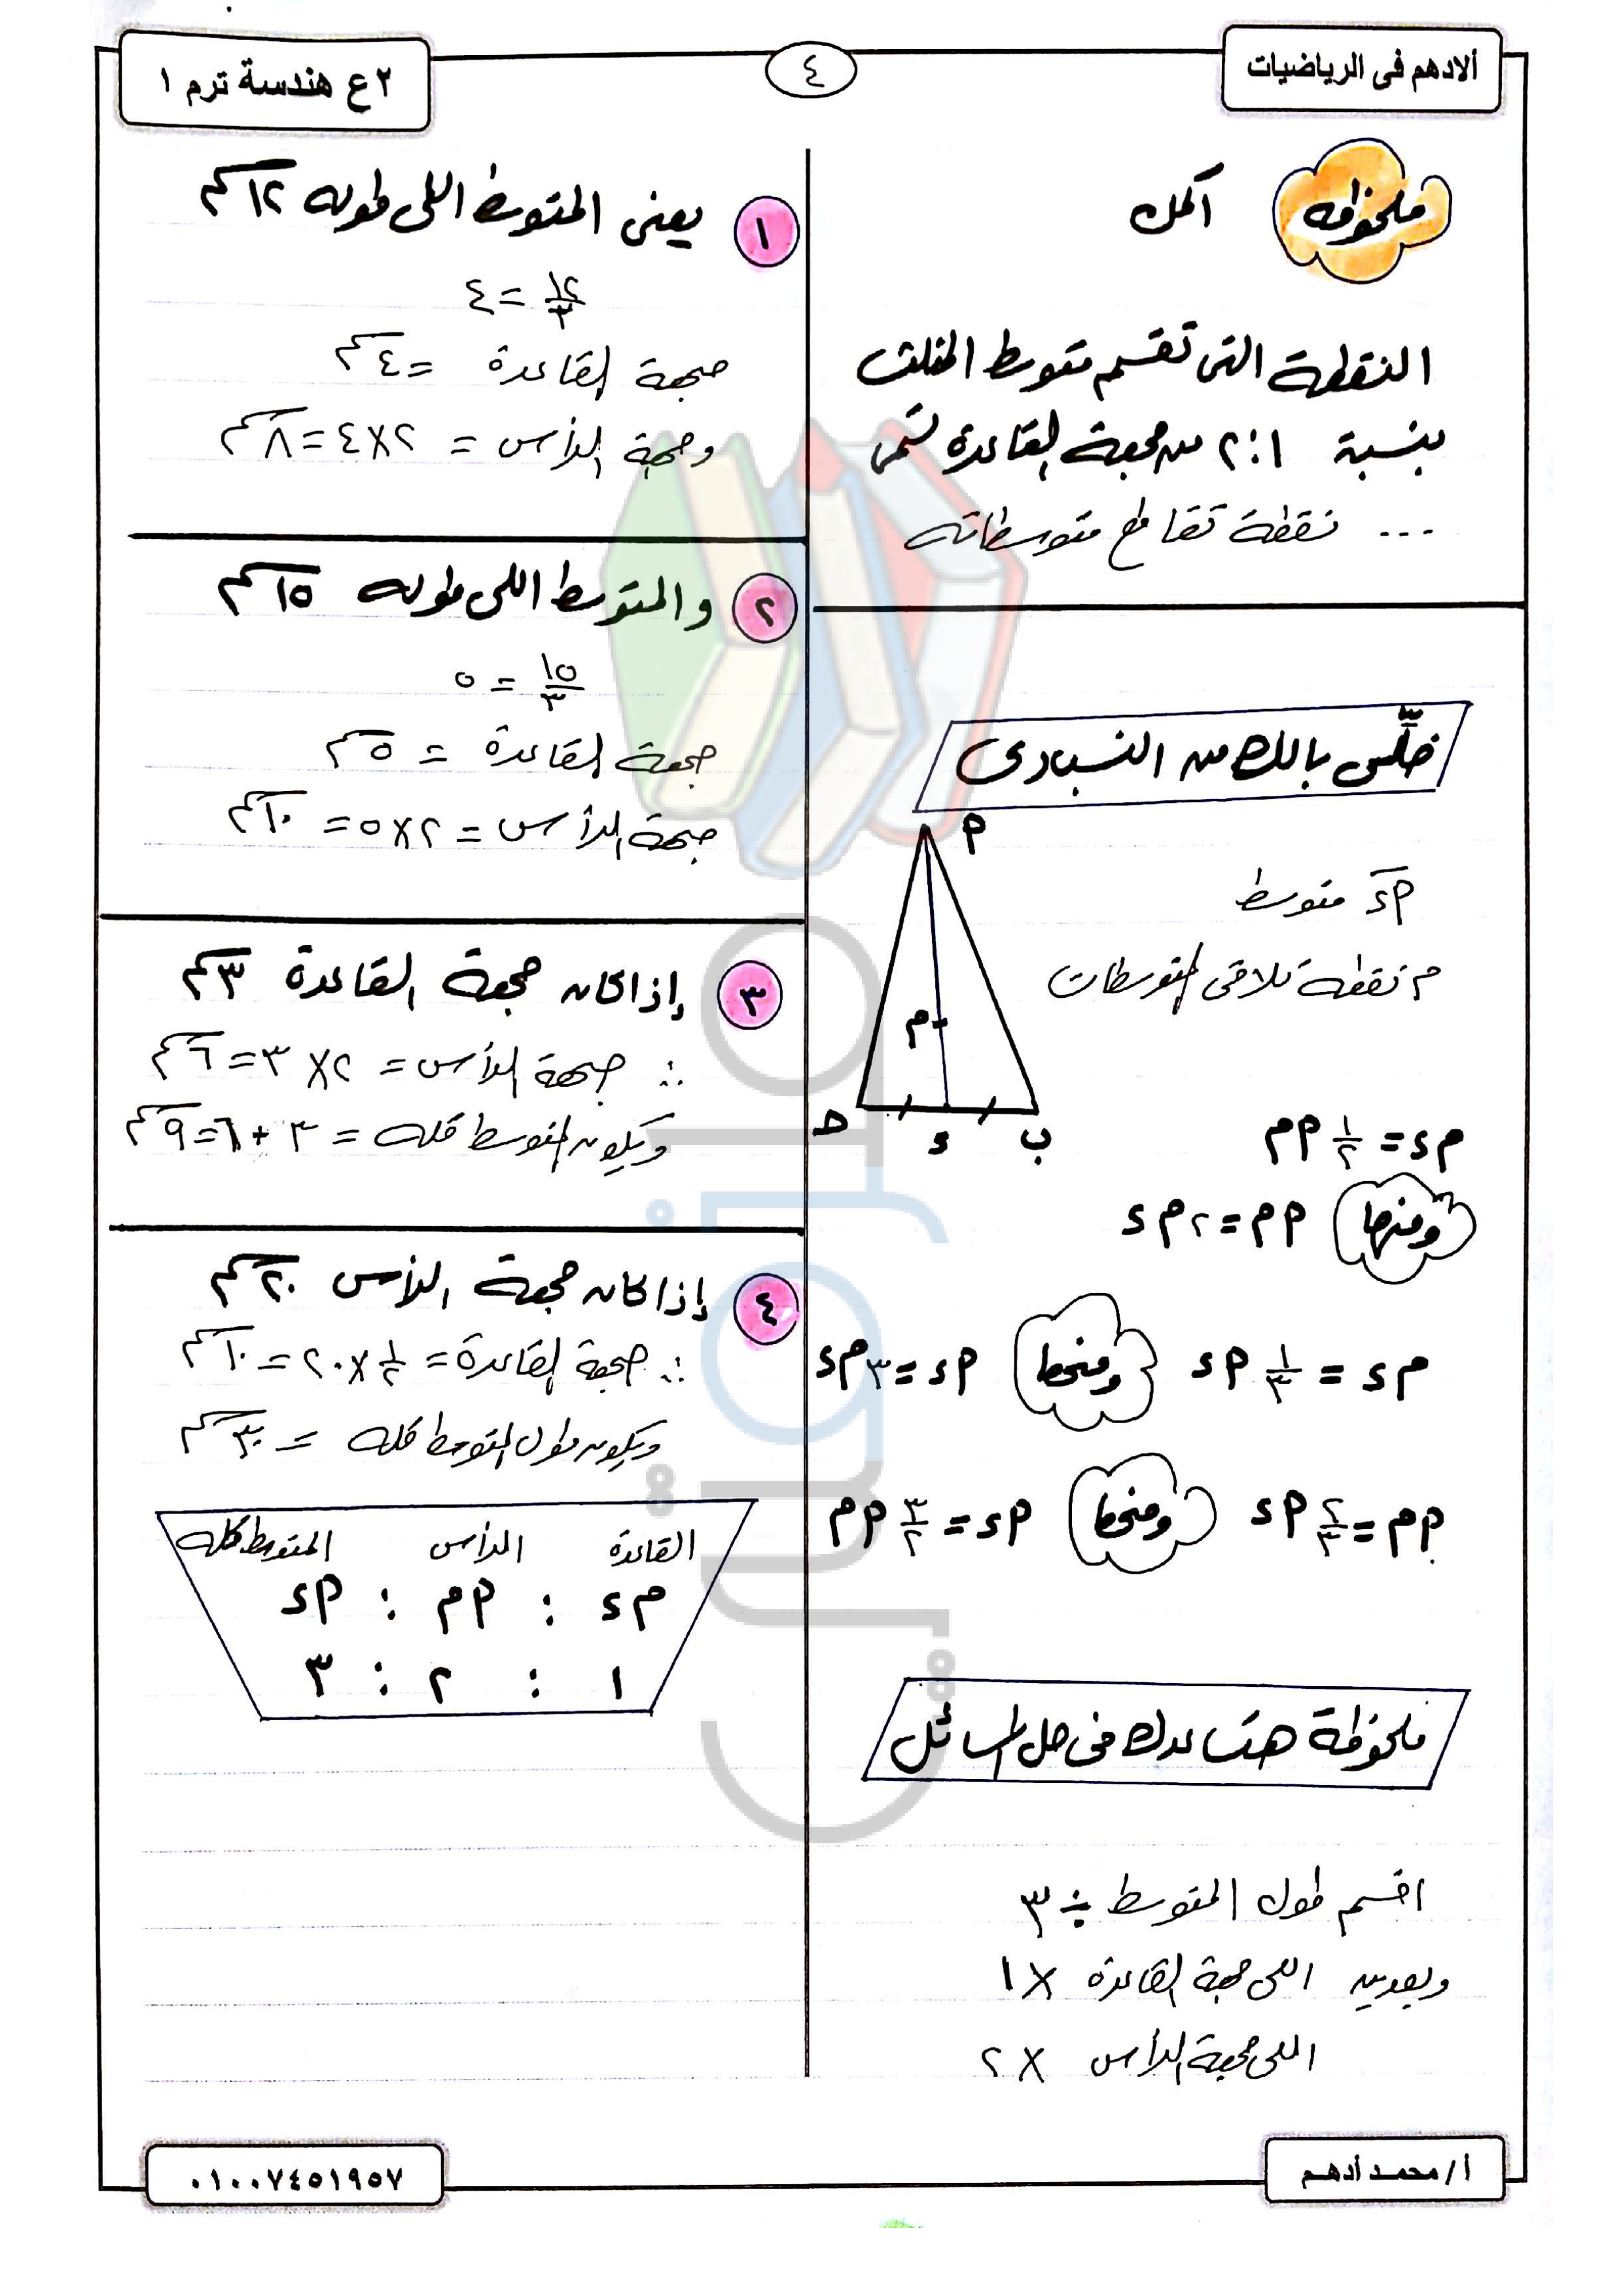 ألادهم فى الرياضيات
٤
٢ع هندسة ترم ١
ملحوظه
أكمل
النقطة التى تقسم متوسط المثلث
بنسبة ١ : ٢ من جهة القاعدة تسمى
... نقطة تقاطع متوسطاته
خلّى بالك من النسب دى
أ
أ ء متوسط
م نقطة تلاقى المتوسطات
م
ب
ء
حـ
م ء = ١/٢ أ م
ومنها أ م = ٢ م ء
م ء = ١/٣ أ ء ومنها أ ء = ٣ م ء
أ م = ٢/٣ أ ء ومنها أ ء = ٣/٢ أ م
ملحوظة هتساعدك فى حل المسائل
اقسم طول المتوسط ÷ ٣
وبعدين اللى جهة القاعدة × ١
اللى جهة الرأس × ٢
١ يعنى المتوسط اللى طوله ١٢ سم
١٢/٣ = ٤
جهة القاعدة = ٤ سم
وجهة الرأس = ٢ × ٤ = ٨ سم
٢ والمتوسط اللى طوله ١٥ سم
١٥/٣ = ٥
جهة القاعدة = ٥ سم
جهة الرأس = ٢ × ٥ = ١٠ سم
٣ إذا كان جهة القاعدة ٣ سم
∴ جهة الرأس = ٢ × ٣ = ٦ سم
ويكون المتوسط كله = ٣ + ٦ = ٩ سم
٤ إذا كان جهة الرأس ٢٠ سم
∴ جهة القاعدة = ١/٢ × ٢٠ = ١٠ سم
ويكون طول المتوسط كله = ٣٠ سم
القاعدة الرأس المتوسط كله
م ء : أ م : أ ء
١ : ٢ : ٣
أ / محمد أدهم
٠١٠٠٧٤٥١٩٥٧